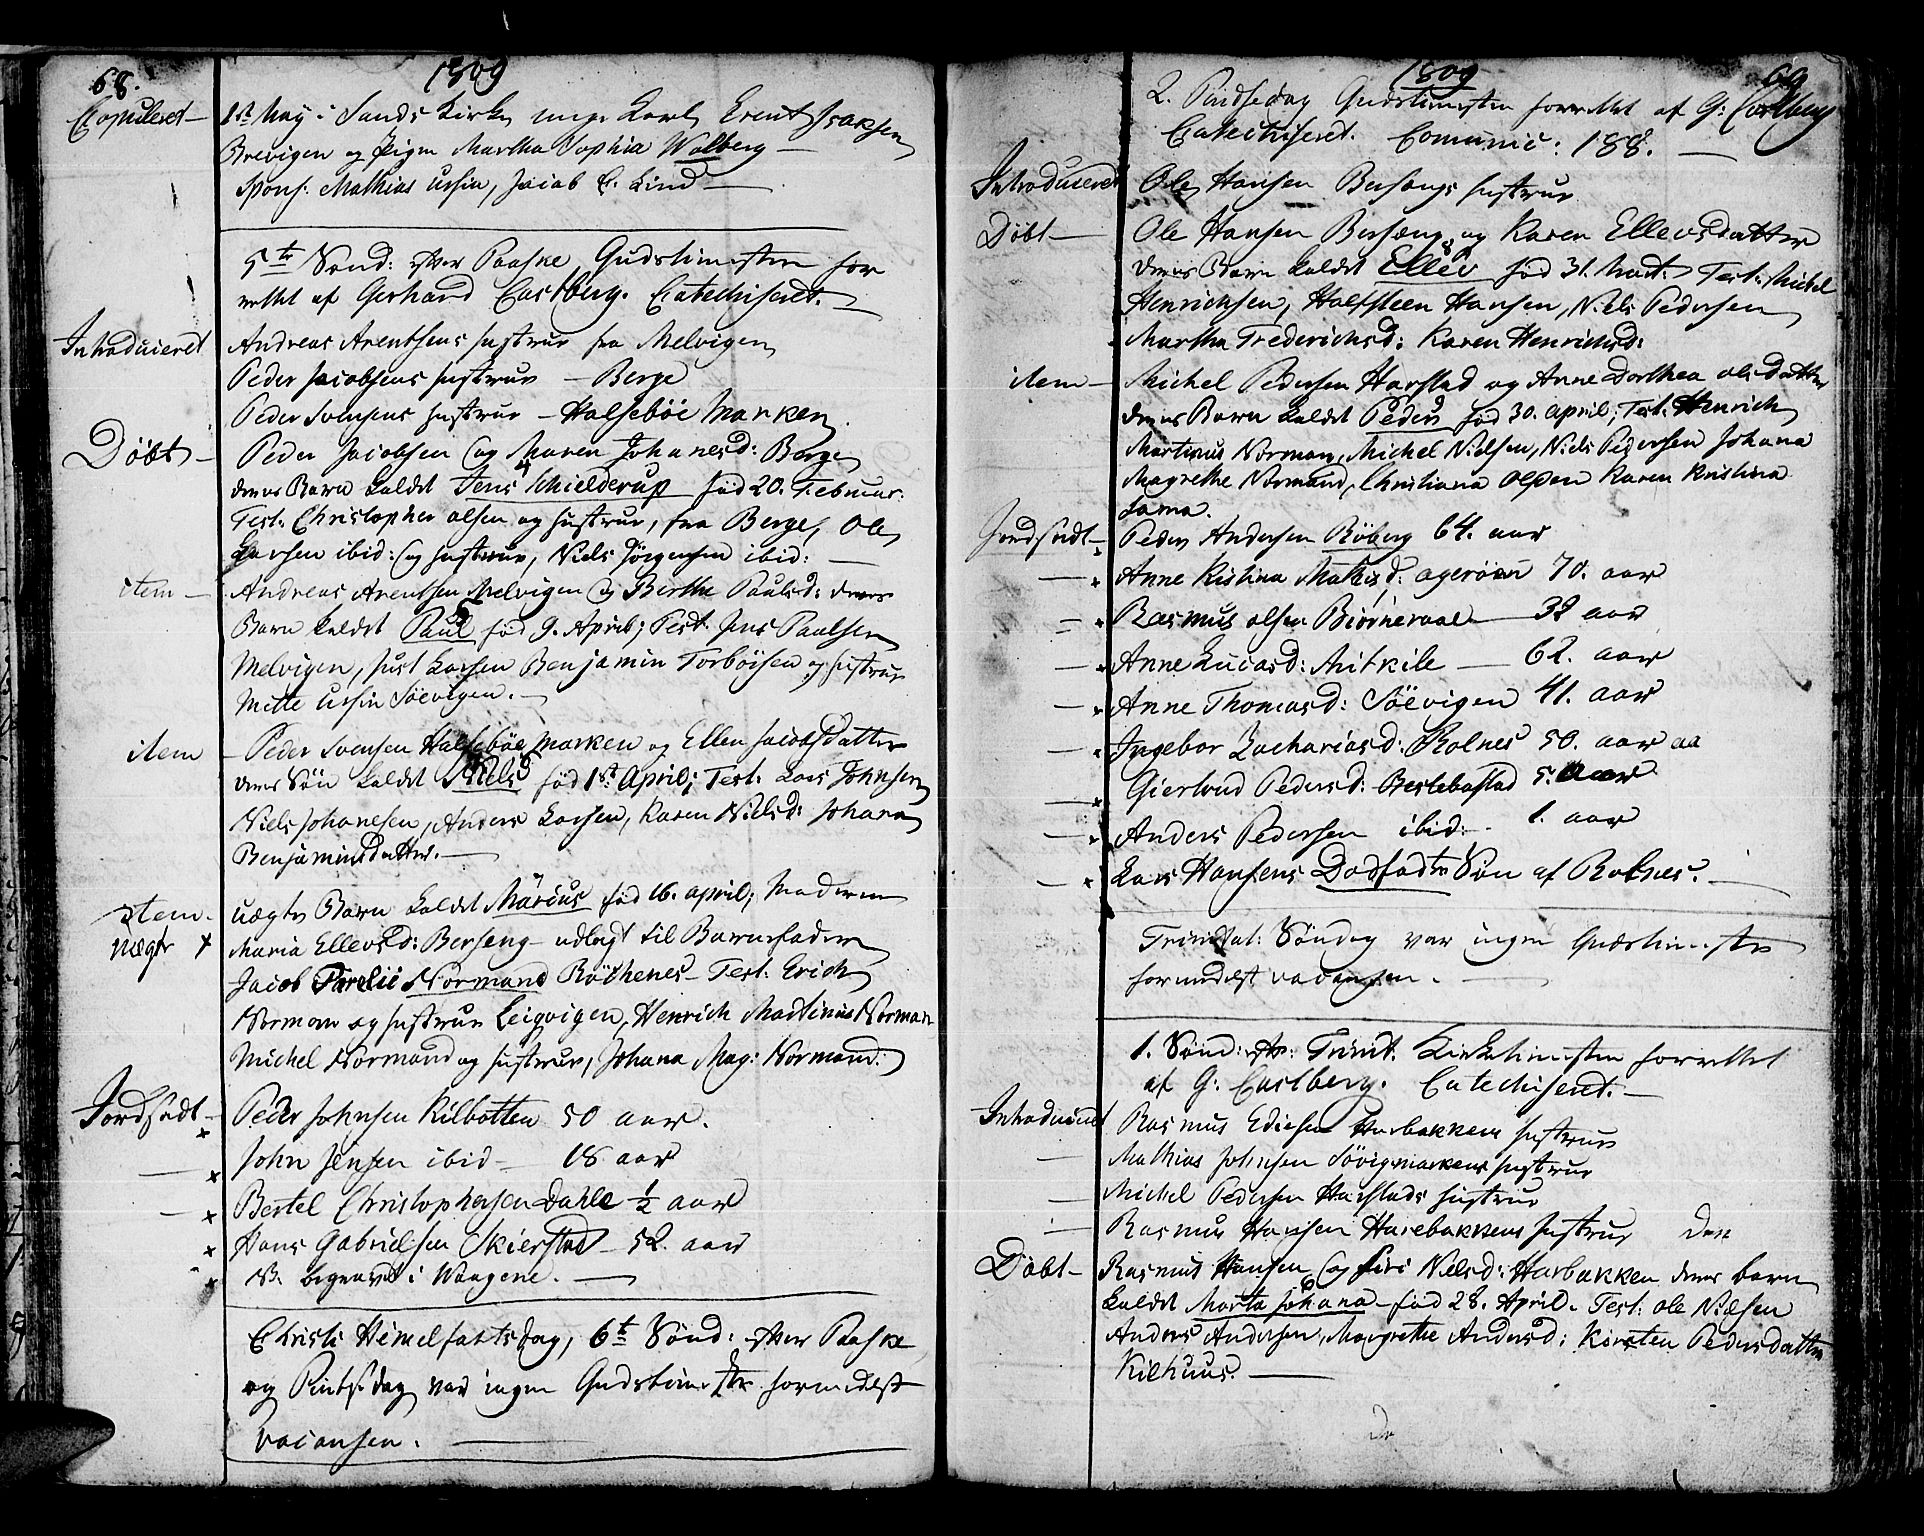 68.
1809
Copuleret —
1ste May i Sands Kirke unge Karl Erent Isaksen
Brevigen og Pigen Martha Sophia Walberg —
Spons. Mathias Ursin, Jacob C. Lind —
5te Sønd: efter Paaske Gudstienesten for
rettet af Gerhard Castberg. Catechiseret. —
Introduceret
Andreas Arentsens hustrue fra Melvigen
Peder Jacobsens hustrue — Berge
Peder Svensens hustrue — Halsebøe Marken
Døbt —
Peder Jacobsen og Maren Johanesd: Berge
deres Barn kaldet Jens Schielderup fød 20. Februar.
4
Test: Christopher Olsen og hustrue, fra Berge, Ole
Larsen ibid: og hustrue, Niels Jörgensen ibid: —
item —
Andreas Arentsen Melvigen og Birthe Paulsd: deres
Barn kaldet Paul fød 9. April; Test. Jens Paulsen
5
Melvigen, Just Larsen Benjamin Torböisen og hustrue
Mette Ursin Söevigen. —
item
— Peder Svensen Halsebøe marken og Ellen Jacobsdatter
deres Søn kaldet Niels fød 1st April; Test: Lars Johnsen
Niels Johanesen, Anders Larsen, Karen Nielsd: Johana
Benjaminsdatter. —
item —
uægte
uægte Barn kaldet Marius fød 16. april; Moderen
Maria Ellevsd: Berseng — udlagt til Barnefader
Jacob Normand Röthenes — Test: Erich
Norman og hustrue Leigvigen, Henrich Martinus Norman
Michel Normand og hustrue, Johana Mag: Normand.
Jordfæst —
Peder Johnsen Kilbotten 50 aar.
John Jensen ibid — 18 aar
Bertel Christophersen Dahle ½ aar
Hans Gabrielsen Skierstad — 52. aar
NB. begravet i Waagene. —
Christi Himelfartsdag, 6te Sønd: efter Paaske
og Pintsedag var ingen Gudstieneste formedelst
vacansen. —
1809
69
2. Pindsedag Gudstienesten forrettet af G: Castberg
Catechiseret. Comunic: 188. —
Introduceret
Ole Hansen Bersengs hustrue
Døbt —
Ole Hansen Berseng og Karen Ellevsdatter
deres Barn kaldet Ellev fød 31. Mart. Test: Michel
Henrichsen, Halfsteen Hansen, Niels Pedersen
Martha Frederichsd: Karen Henrichsd:
item —
Michel Pedersen Harstad og Anne Dorthea Olsdatter
deres Barn kaldet Peder fød 30. april; Test: Henrich
Martinus Norman, Michel Nielsen, Niels Pedersen Johana
Magrethe Normand, Christiana Olsen Karen Kristina
Lama.
Jordfæst —
Peder Andersen Röberg 64. aar
Anne Kistina Mathisd: ageröen 70. aar
Rasmus Olsen Biörneraae — 32 aar
Anne Lucasd: Mitkile — 62. aar
Anne Thomasd: Söevigen 41. aar
Ingebor Zachariasd: Rolnes 50. aar
Giertrud Pedersd: Beslebostad 5. aar
Anders Pedersen ibid: — 1. aar
Lars Hansens Dødfødte Søn af Rolnes. —
Trinitat: Söndag var ingen Gudstieneste
formedelst vacansen. —
1. Sönd: efter: Trinit. Kirketienesten forrettet
af G: Castberg. Catechiseret. —
Introduceret
Rasmus Edisen Harbakkens hustrue
Mathias Johnsen Sövigmarkens hustrue
Michel Pedersen Harstads hustrue
Rasmus Hansen Harebakkens hustrue
Døbt —
Rasmus Hansen og Siri Nielsd: Harbakken deres barn
kaldet Marta Johana — fød 28. April. Test: Ole Nielsen
6
Anders Andersen, Margrethe Andersd: Kirsten Pedersdatter
Kilhuus. —